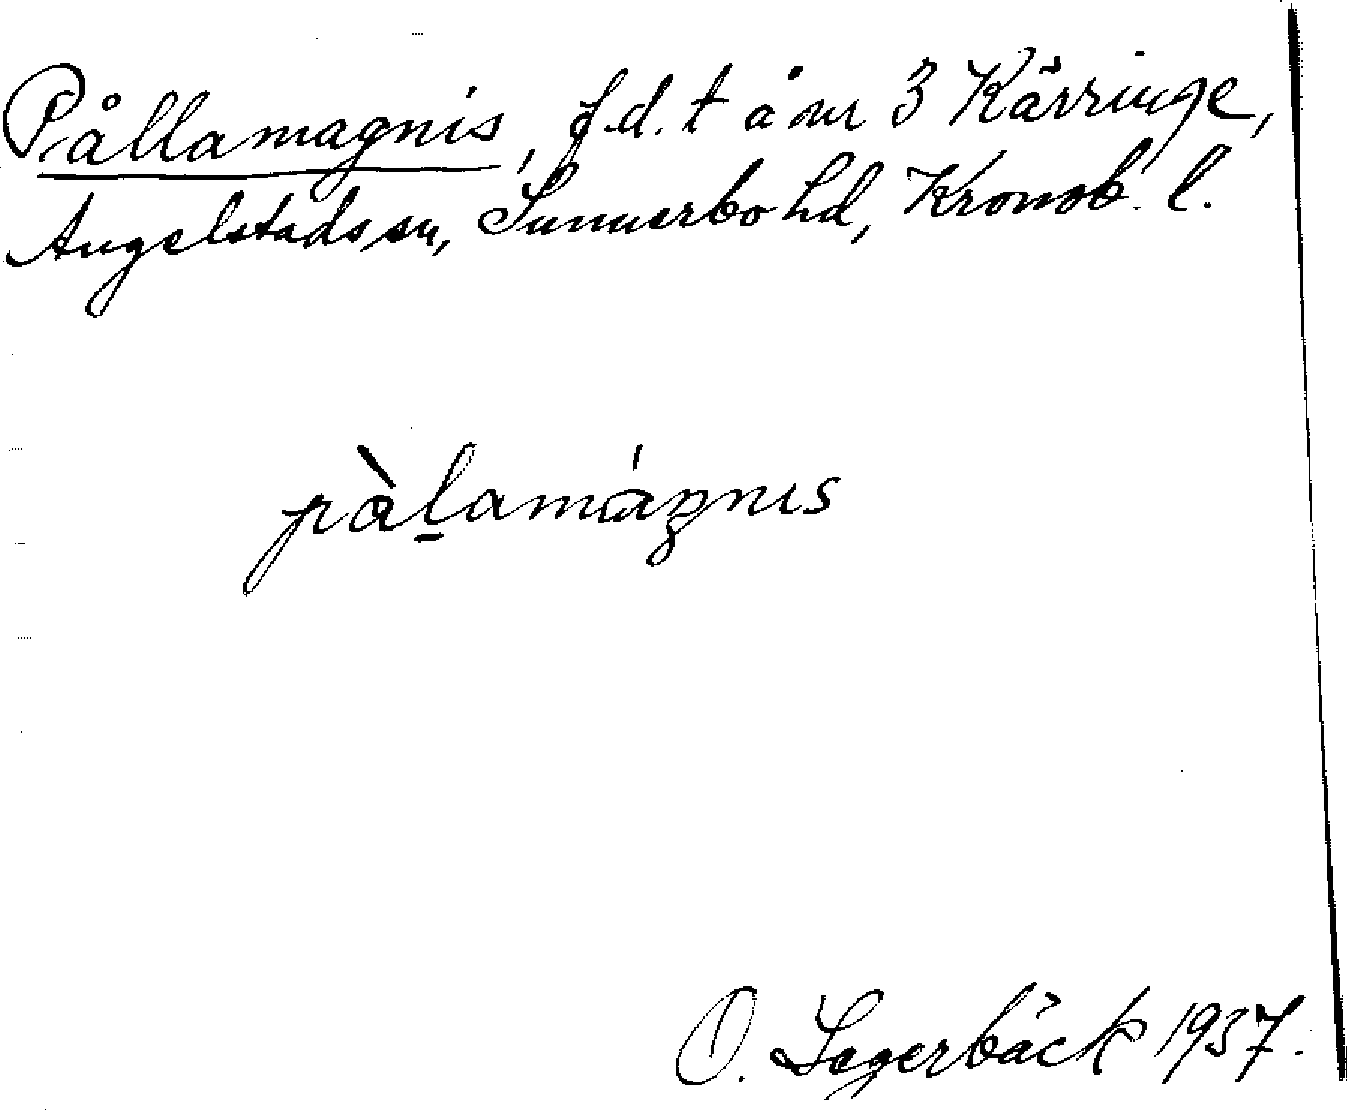 Pållamagnis, f.d. t å nr 3 Kärringe,
Angelstads sn, Sunnerbo hd, Kronob. l.
pàlamágnıs
O. Lagerbäck 1937.